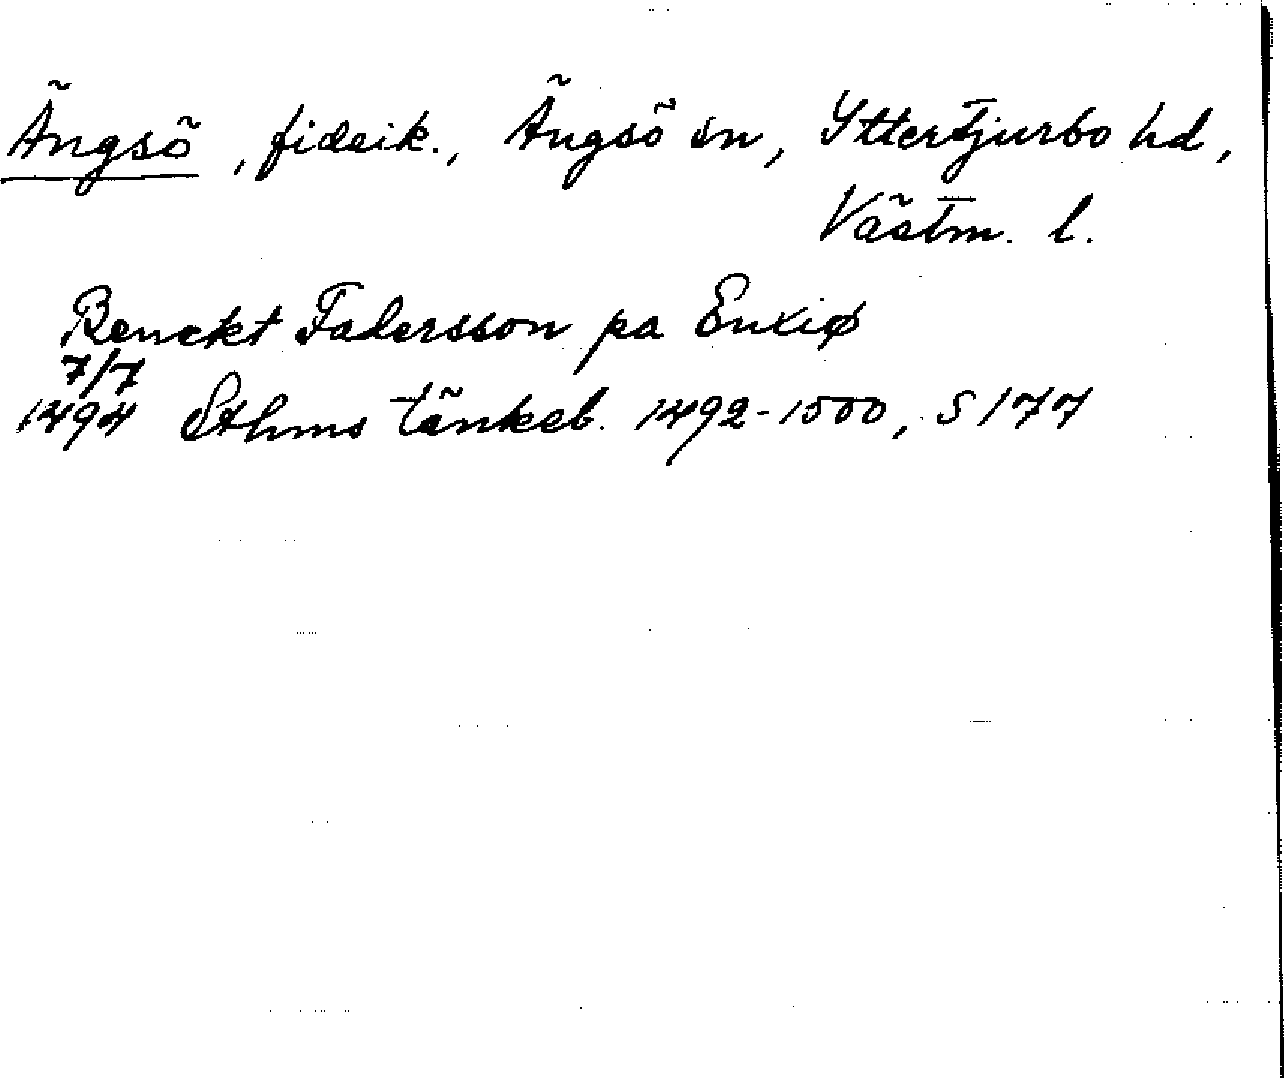 Ängsö, fideik., Ängsö sn, Yttertjurbo hd,
Västm. l.
Benckt Fadersson pa Enxiø
7/7
1494 Sthms tänkeb. 1492-1500, S 177